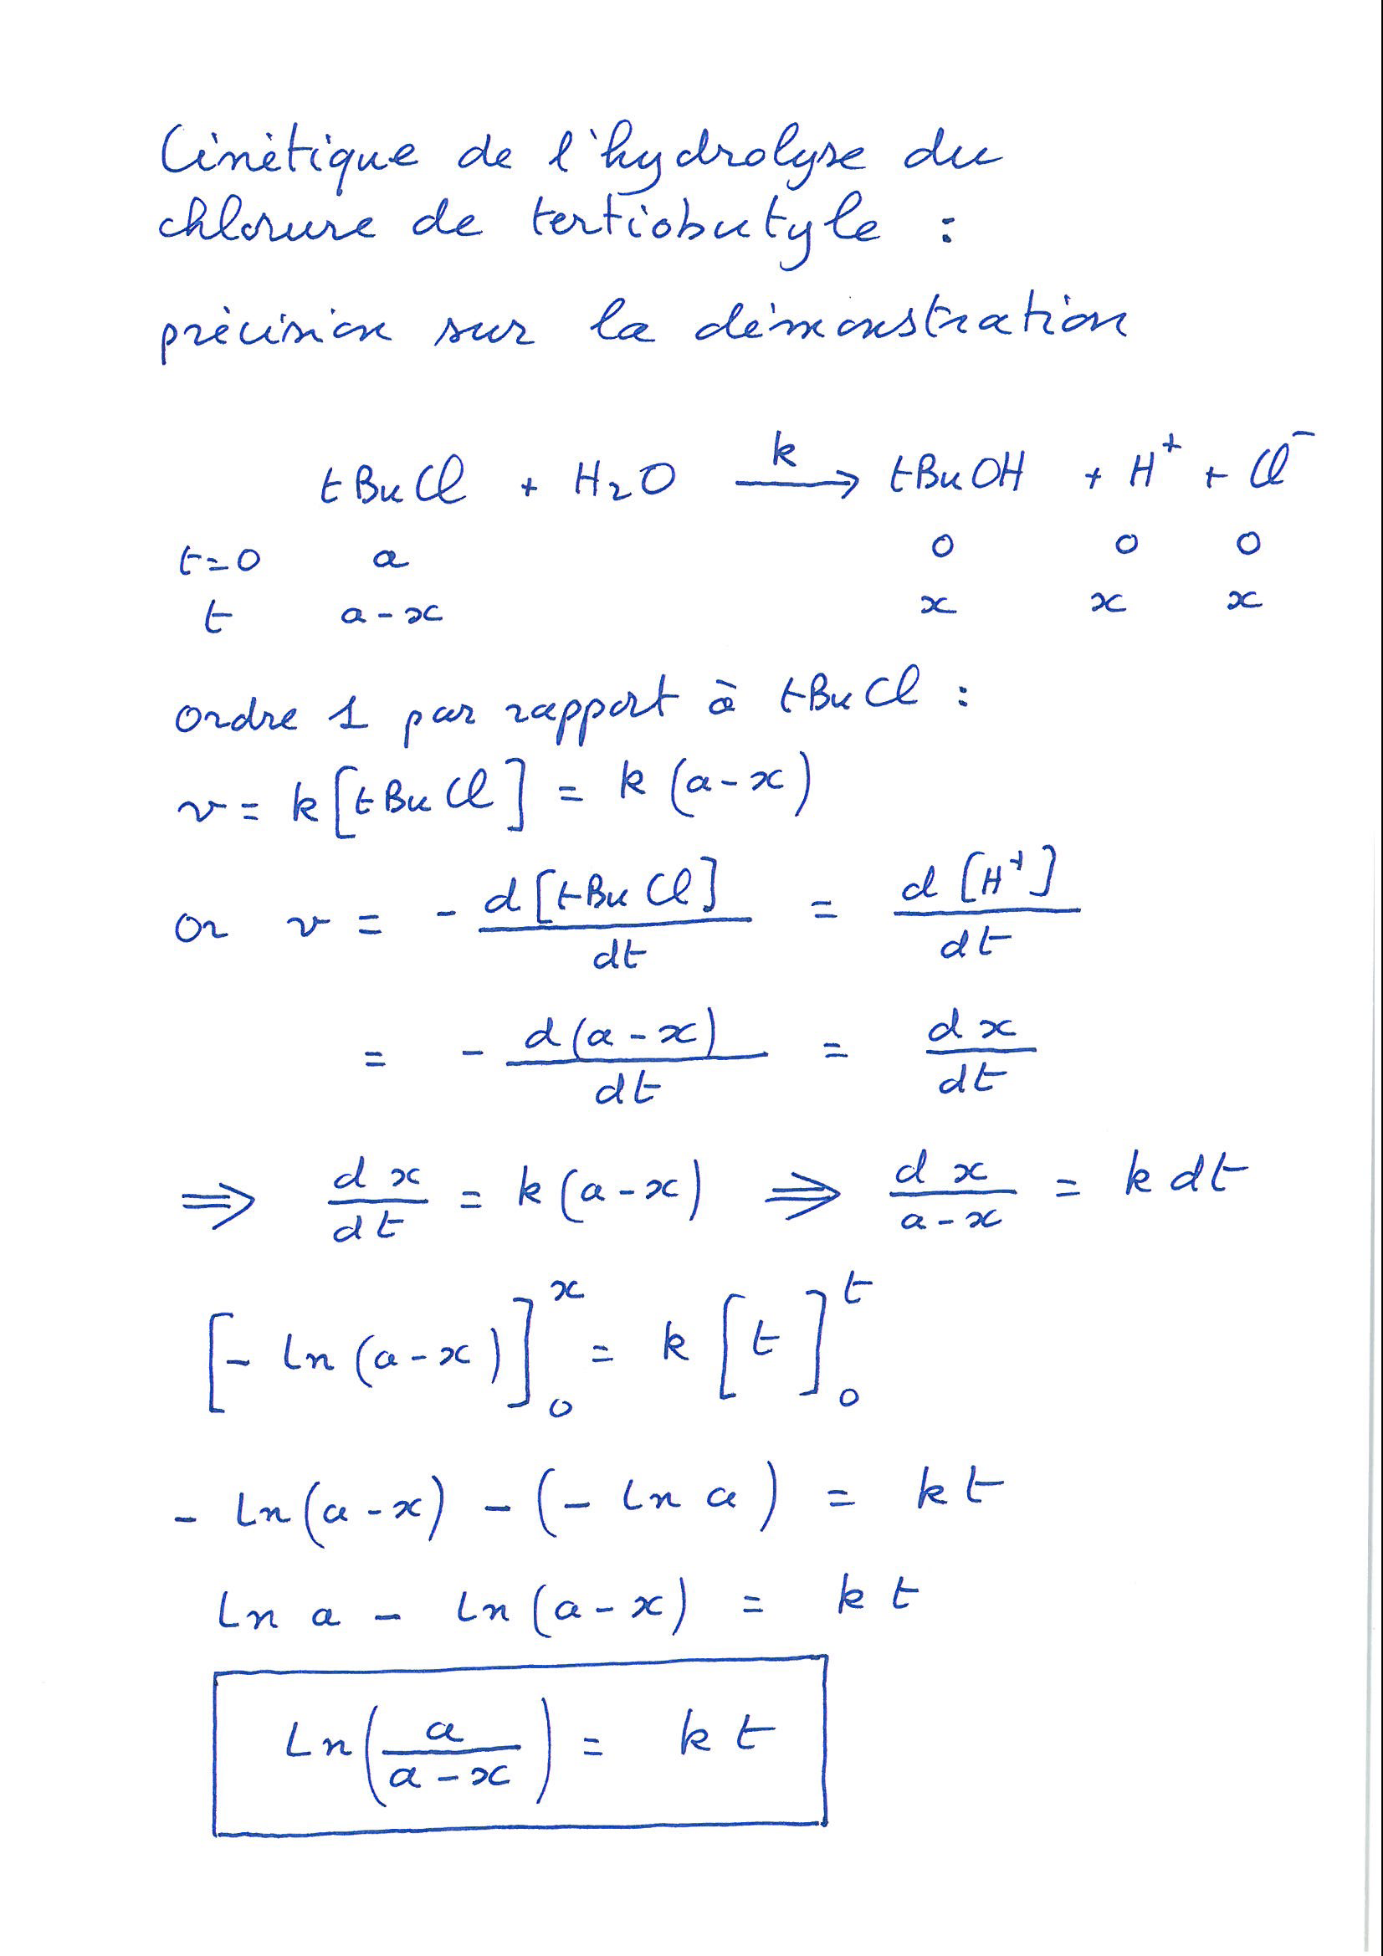 Cinétique de l'hydrolyse du
chlorure de tertiobutyle :
précision sur la démonstration
tBuCl + H₂O —k→ tBuOH + H⁺ + Cl⁻
t=0 a 0 0 0
t a-x x x x
ordre 1 par rapport à tBuCl :
v = k[tBuCl] = k(a-x)
or v = - d[tBuCl]/dt = d[H⁺]/dt
= - d(a-x)/dt = dx/dt
⇒ dx/dt = k(a-x) ⇒ dx/(a-x) = k dt
[- Ln(a-x)]₀ˣ = k[t]₀ᵗ
- Ln(a-x) - (- Ln a) = kt
Ln a - Ln(a-x) = kt
Ln(a/(a-x)) = kt